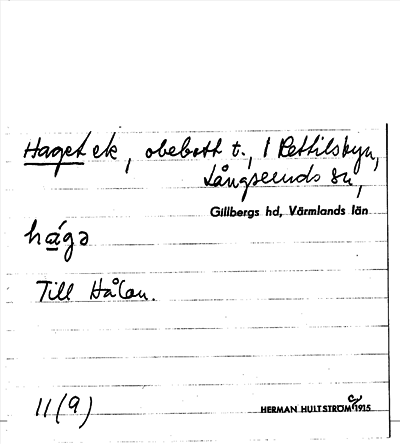 Haget ek, obebott t., 1 Kettilsbyn,
Långseruds sn,
Gillbergs hd, Värmlands län
hágə
Till Hålan.
11(9)
HERMAN HULTSTRÖM 1915